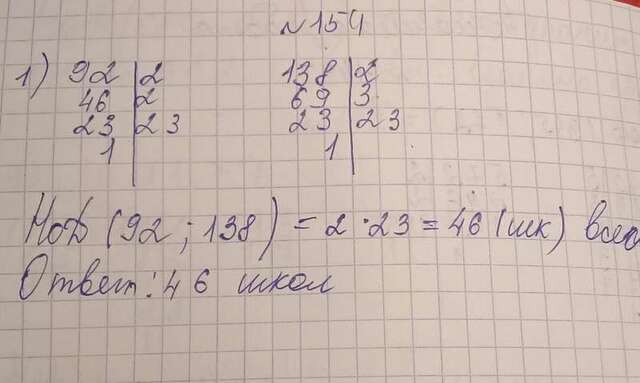 №154
1) 92 | 2 138 | 2
46 | 2 69 | 3
23 | 23 23 | 23
1 | 1 |
НОД (92; 138) = 2 · 23 = 46 (шк) всего
Ответ: 46 школ